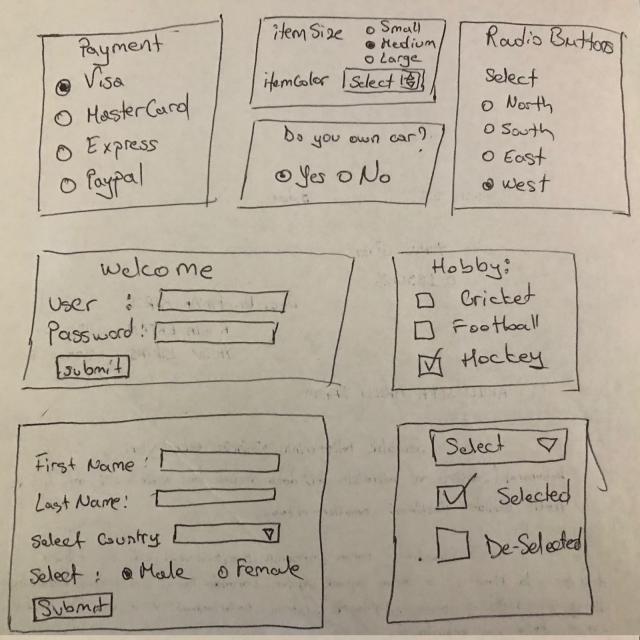 Payment
Visa
MasterCard
Express
Paypal
itemSize
Small
Medium
Large
itemColor Select
Do you own car?
Yes No
Radio Buttons
Select
North
South
East
West
Welcome
User :
Password:
Submit
Hobby:
Cricket
Football
Hockey
First Name :
Last Name:
Select Country
Select : Male Female
Submit
Select
Selected
De-Selected